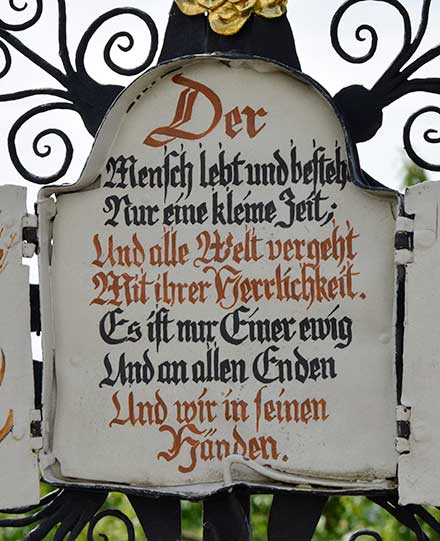 Der
Mensch lebt und besteh
Nur eine kleine Zeit;
Und alle Welt vergeht
Mit ihrer Herrlichkeit.
Es ist nur Einer ewig
Und an allen Enden
Und wir in seinen
Händen.